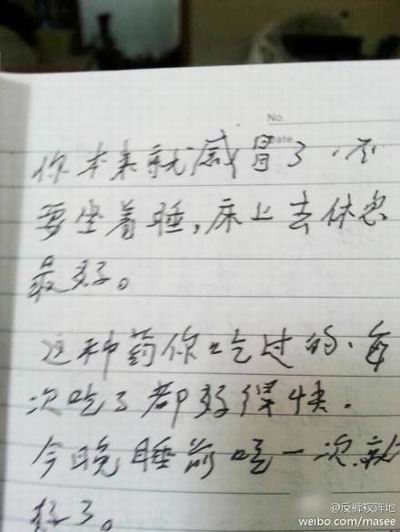 No.
Date
你本来就感冒了、不
要坐着睡，床上去休息
最好。
这种药你吃过的、每
次吃了都好得快.
今晚睡前吃一次就
好了。
@反裤衩阵地
weibo.com/masee